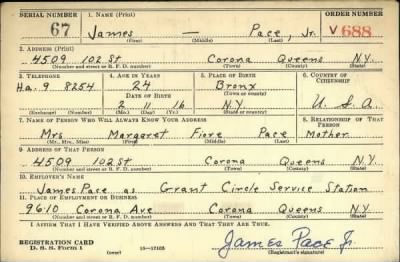 SERIAL NUMBER 1. NAME (Print) ORDER NUMBER
67 James — Pace, Jr. V 688
(First) (Middle) (Last)
2. ADDRESS (Print)
4509 102 St Corona Queens N.Y.
(Number and street or R. F. D. number) (Town) (County) (State)
3. TELEPHONE 4. AGE IN YEARS 5. PLACE OF BIRTH 6. COUNTRY OF CITIZENSHIP
Ha. 9 8254 24 Bronx
DATE OF BIRTH (Town or county)
2 11 16 N.Y. U.S.A.
(Exchange) (Number) (Mo.) (Day) (Yr.) (State or country)
7. NAME OF PERSON WHO WILL ALWAYS KNOW YOUR ADDRESS 8. RELATIONSHIP OF THAT PERSON
Mrs Margaret Fiore Pace Mother
(Mr., Mrs., Miss) (First) (Middle) (Last)
9. ADDRESS OF THAT PERSON
4509 102 St Corona Queens N.Y.
(Number and street or R. F. D. number) (Town) (County) (State)
10. EMPLOYER'S NAME
James Pace as Grant Circle Service Station
11. PLACE OF EMPLOYMENT OR BUSINESS
9610 Corona Ave Corona Queens N.Y.
(Number and street or R. F. D. number) (Town) (County) (State)
I AFFIRM THAT I HAVE VERIFIED ABOVE ANSWERS AND THAT THEY ARE TRUE.
REGISTRATION CARD James Pace Jr
D. S. S. Form 1 (over) 16—17105 (Registrant's signature)